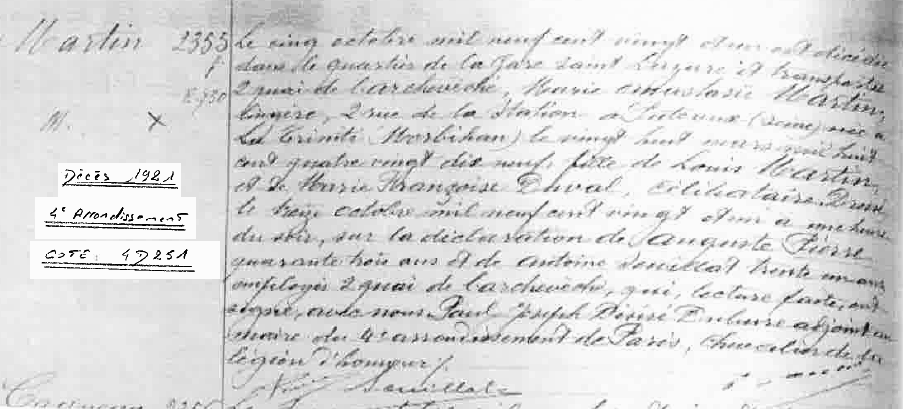 Martin 2355
Le cinq octobre mil neuf cent vingt et un est décédée
dans le quartier de la Gare Saint Lazare et transportée
2 quai de l'archevêché, Marie Anastasie Martin,
lingère, 2 rue de la Station à Puteaux (Seine) née à
La Trinité (Morbihan) le vingt huit mars mil huit
cent quatre vingt dix neuf, fille de Louis Martin,
et de Marie Françoise Duval, célibataire. Dressé
le treize octobre mil neuf cent vingt et un à une heure
du soir, sur la déclaration de Auguste Pierre
quarante trois ans et de Antoine Souillat trente un ans
employés 2 quai de l'archevêché, qui, lecture faite, ont
signé, avec nous Paul Joseph Désiré adjoint au
maire du 4e arrondissement de Paris, Chevalier de la
légion d'honneur ./.
Souillat
M. X
Décès 1921
4e Arrondissement
COTE: 4D251